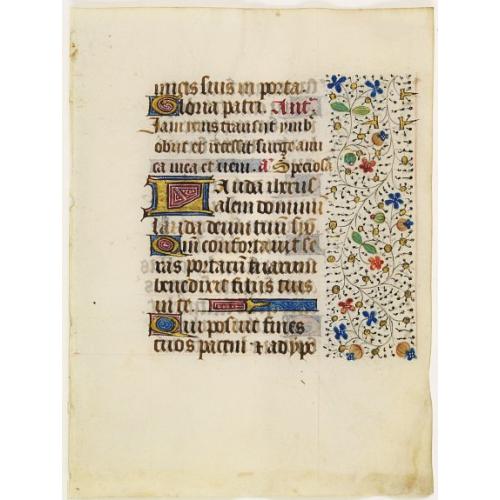 micis suis in porta.
Gloria patri. Ant.
Iam iens transiit ymb
obiit et recessit surge ami
ca mea et veni. a. Speciosa
Lauda iherus
alem dominu
lauda deum tuu syo
Qm confortavit se
ras portaru tuarum
benedixit filiis tuis
in te
Qui posuit fines
tuos pacem & adype